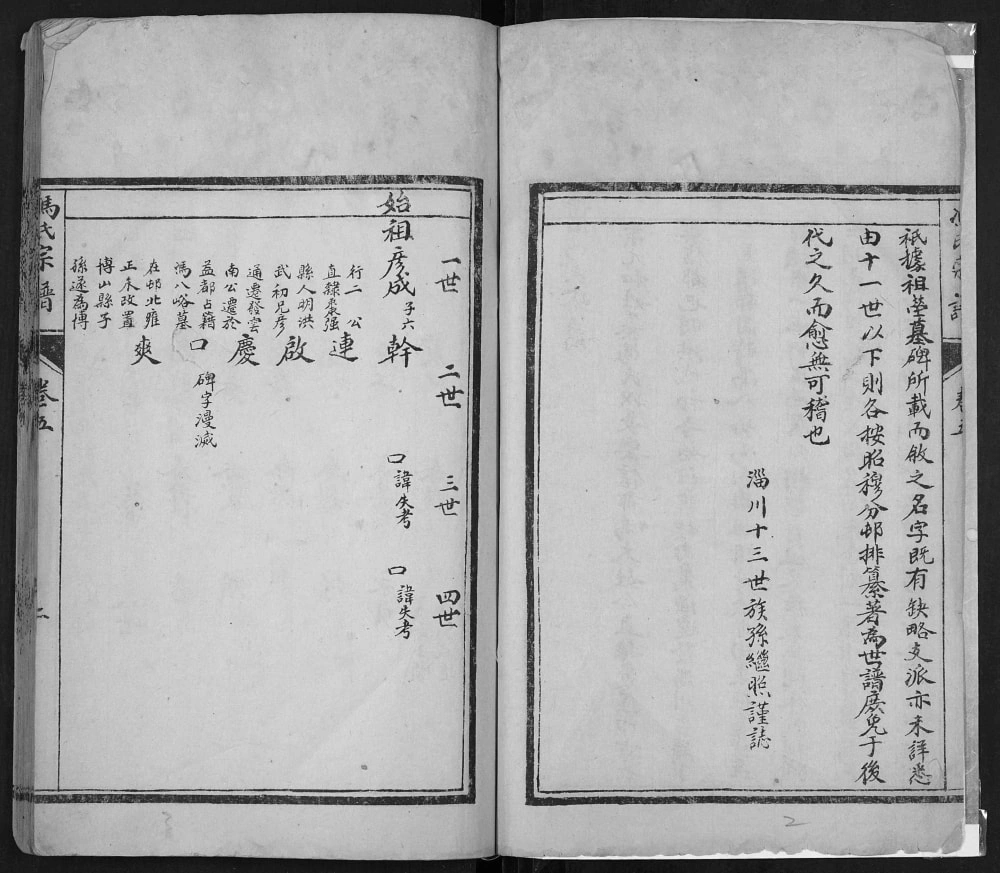 祇據祖塋墓碑所載而敘之名字既有缺略支派亦未詳悉
由十一世以下則各按昭穆分邨排纂著為世譜庶免于後
代之久而愈無可稽也
淄川十三世族孫繼照謹誌
2
一世
二世
三世
四世
始祖彥成
子六
行二公
直隸棗强
縣人明洪
武初兄彥
通遷發雲
南公遷於
益都占籍
馮八峪墓
在邨北雍
正末改置
博山縣子
孫遂為博
幹
連
啟
慶
口
碑字漫滅
爽
口
諱失考
口
諱失考
馮氏宗譜
卷五
二
3